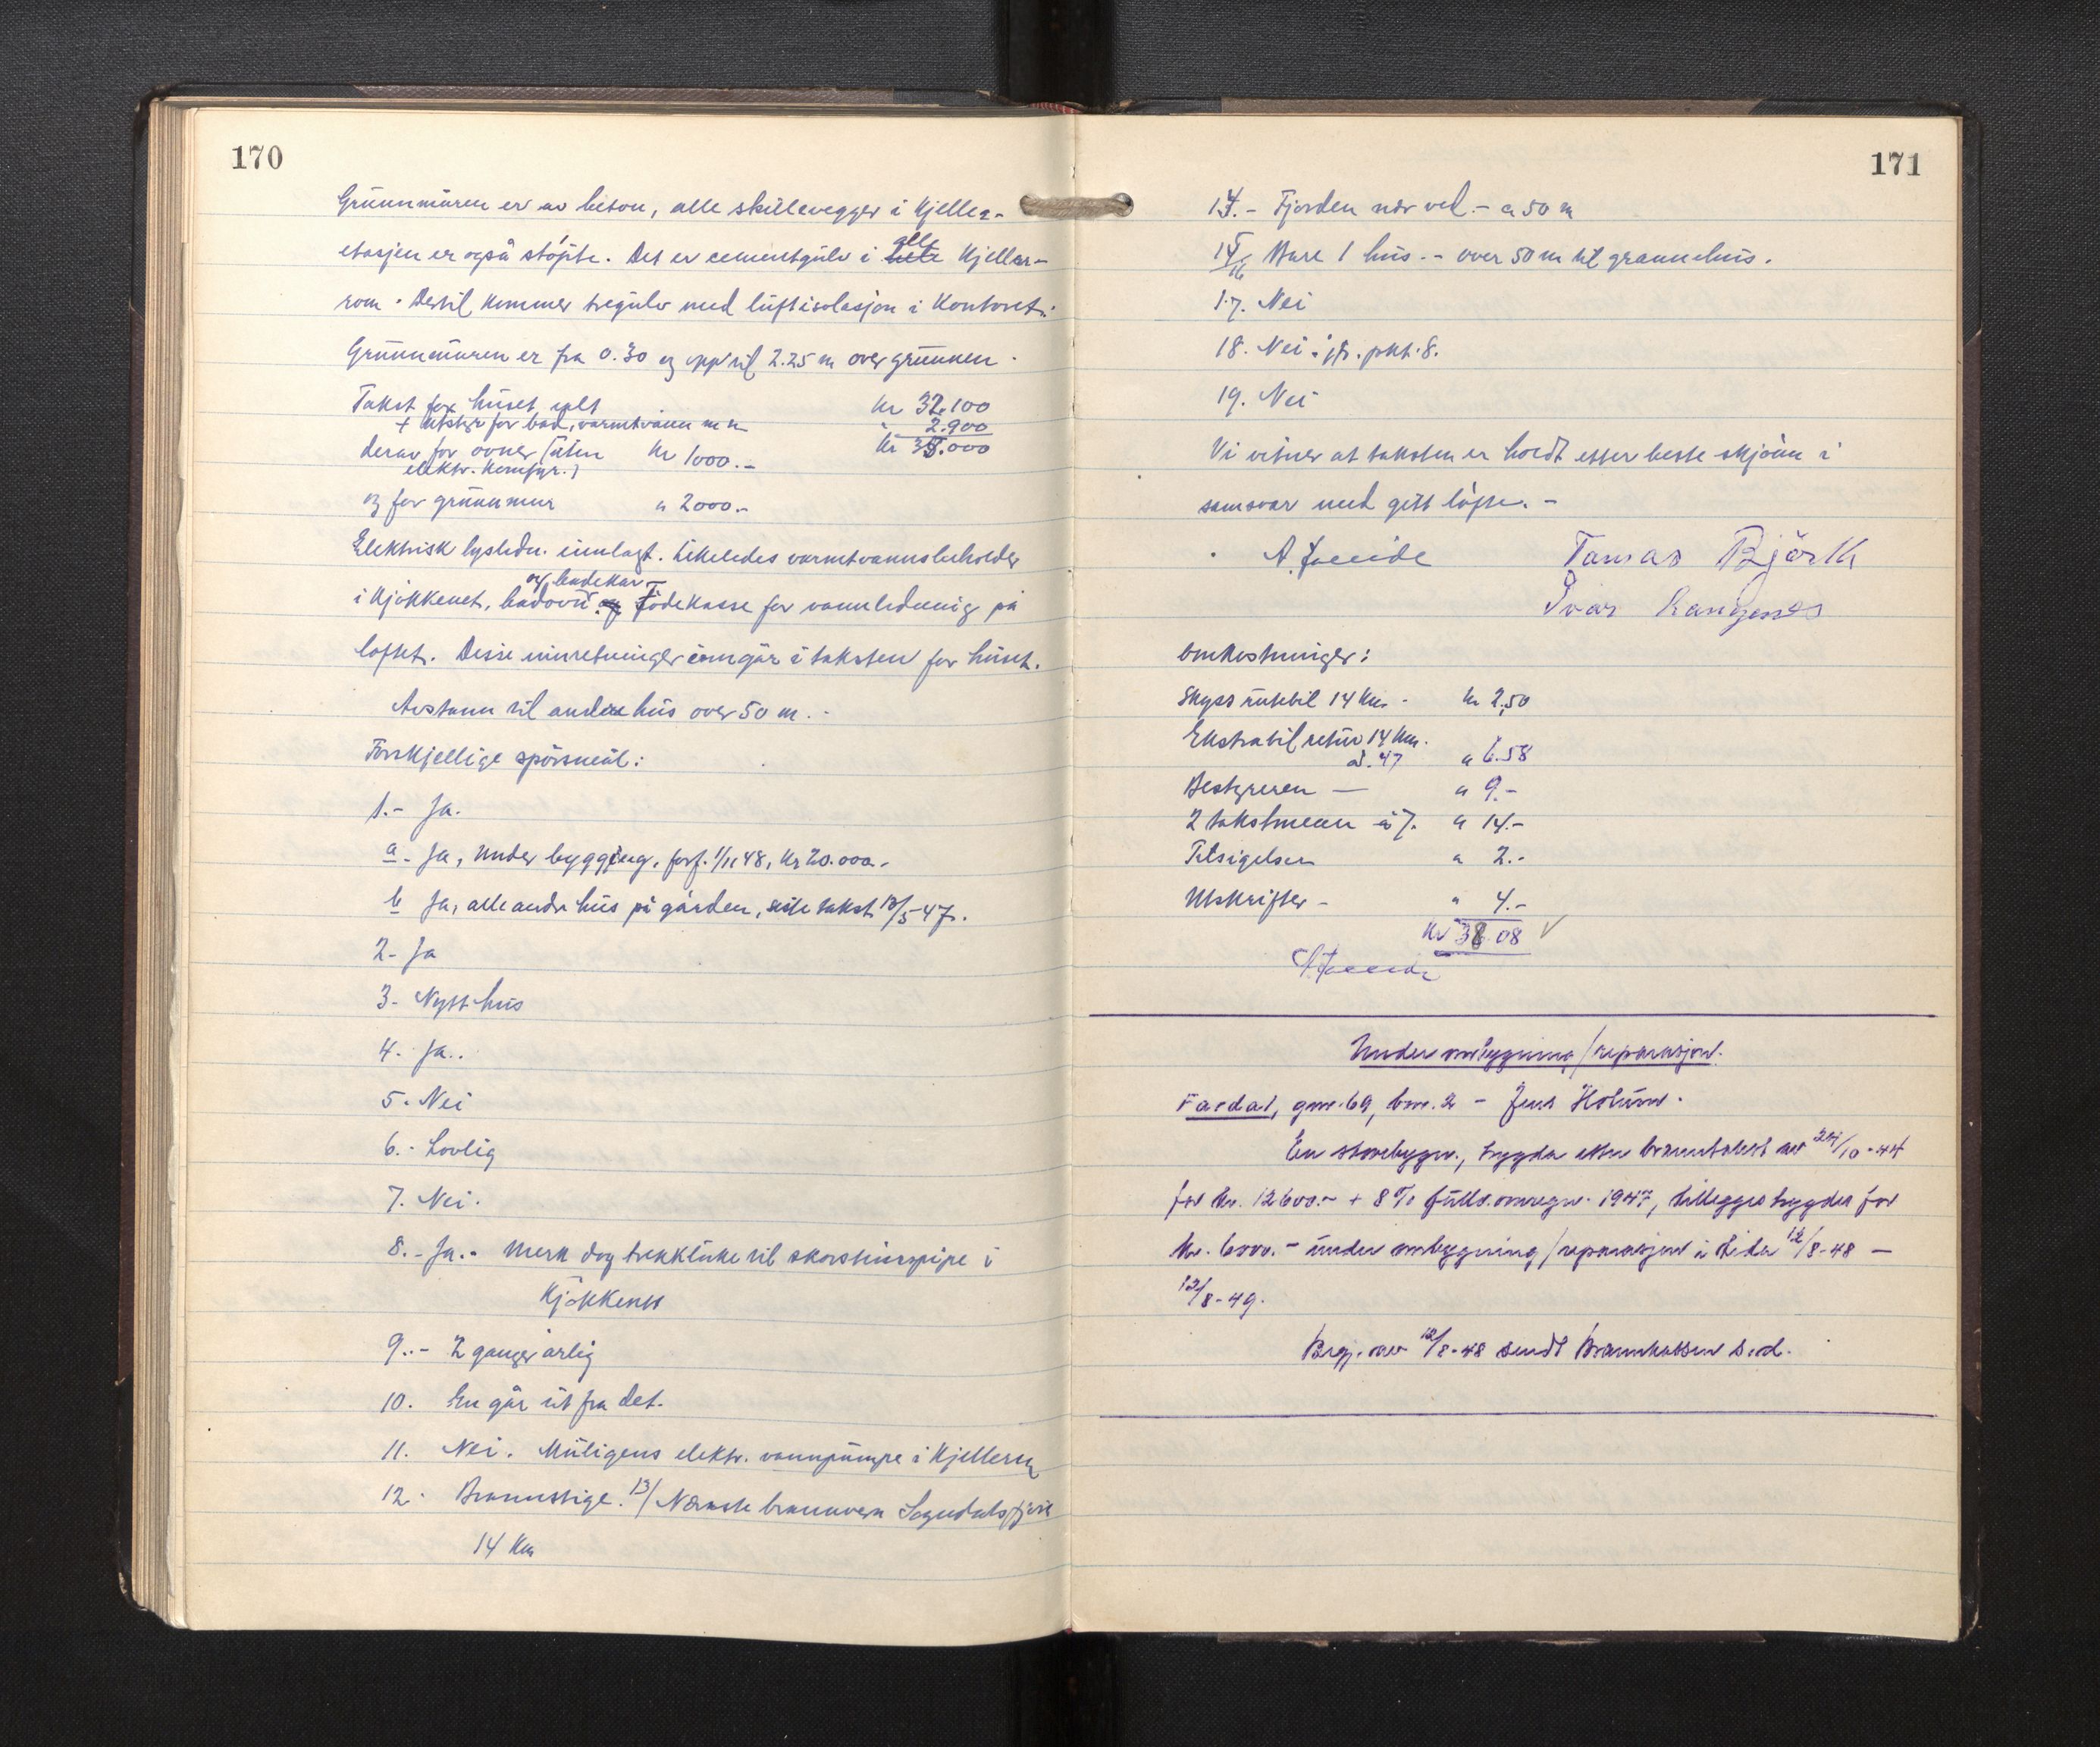 170
Grunnmuren er av beton, alle skillevegger i kjeller-
etasjen er også støpte. Det er cementgulv i alle kjeller-
rom. Dertil kommer tregulv med luftisolasjon i kontoret.
Grunnmuren er fra 0.30 og opp til 2.25 m over grunnen.
Takst for huset ialt kr 32.100
+ Utstyr for bad, varmtvann m m " 2.900
kr 35.000
derav for ovner (uten kr 1000.-
elektr. komfyr.)
og for grunnmur " 2000.-
Elektrisk lysledn. innlagt. Likeledes varmtvannsbeholder
og badekar
i kjøkkenet, badovn. Fødekasse for vannledning på
loftet. Disse innretninger inngår i taksten for huset.
Avstann til andre hus over 50 m. -
Forskjellige spørsmål:
1.- Ja.
a- Ja, under bygging, forf. 1/11 48, kr 20.000.-
b Ja, alle andre hus på gården, siste takst 13/5-47.
2- Ja
3- Nytt hus
4- Ja..
5. Nei
6.- Lovlig
7. Nei.
8.- Ja.- Merk dog trekkluke til skorsteinspipe i
kjøkkenet
9..- 2 ganger årlig
10. En går ut fra det.
11. Nei. Muligens elektr. vannpumpe i kjelleren
12. Brannstige. 13/ Næraste brannvern Sogndalsfjøra
14 km
171
14.- Fjorden nær ved.- a 50 m
15/16 Bare 1 hus.- over 50 m til grannehus.
17. Nei
18. Nei. jfr. pkt. 8.
19. Nei
Vi vitner at taksten er holdt etter beste skjønn i
samsvar med gitt løfte. -
Tomas Björk
Ivar
Omkostninger:
Skyss rutebil 14 km - kr 2,50
Ekstrabil retur 14 km.
à .47 " 6.58
Bestyreren — " 9.-
2 takstmenn à 7. " 14.-
Tilsigelsen " 2.-
Utskrifter - " 4.-
kr 38 08 ✓
Under ombygning/reparasjon.
Fardal, gnr. 69, bnr. 2 - Jens Holum.
En stovebygn., trygda etter branntakst av 24/10-44
for kr. 12600.- + 8% omregn. 1947, tillegges trygdes for
kr. 6000.- under ombygning/reparasjon i tida 12/8-48 —
12/8-49.
Begj. av 12/8-48 sendt Brannkassen s.d.